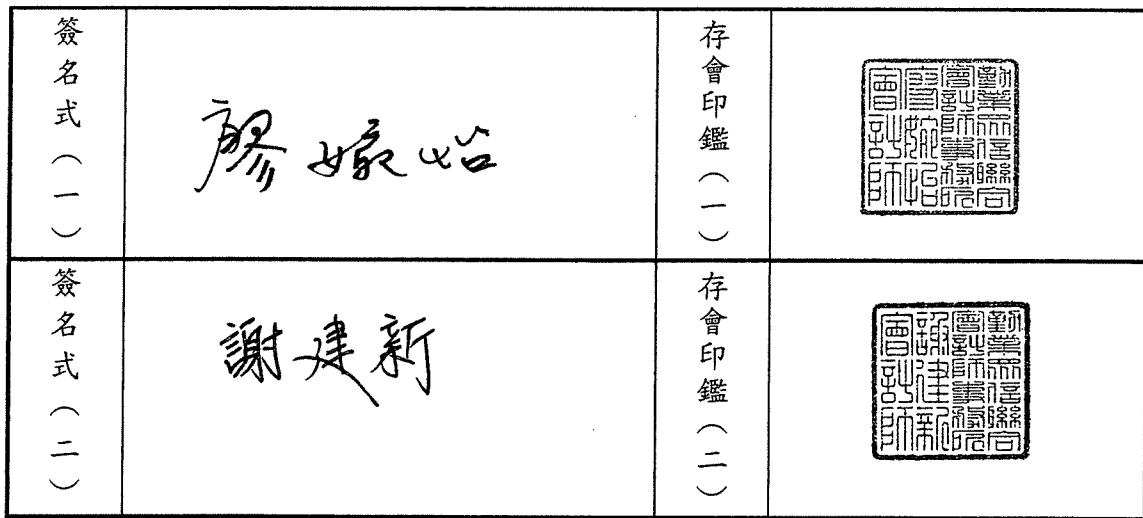 簽名式（一）
廖婉怡
存會印鑑（一）
勤業眾信聯合
會計師事務所
廖婉怡
會計師
簽名式（二）
謝建新
存會印鑑（二）
勤業眾信聯合
會計師事務所
謝建新
會計師